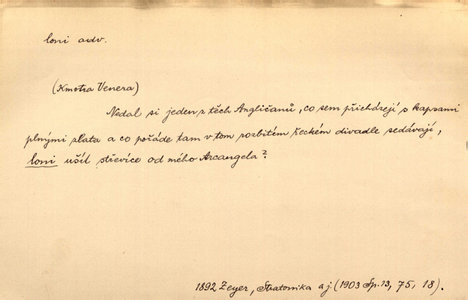 loni adv.
(Kmotra Venera)
Nedal si jeden z těch Angličanů, co sem přicházejí s kapsami
plnými zlata a co pořáde tam v tom rozbitém řeckém divadle sedávají,
loni ušít střevíce od mého Arcangela?
1892 Zeyer, Stratonika a j. (1903 Sp. 13, 75, 18).